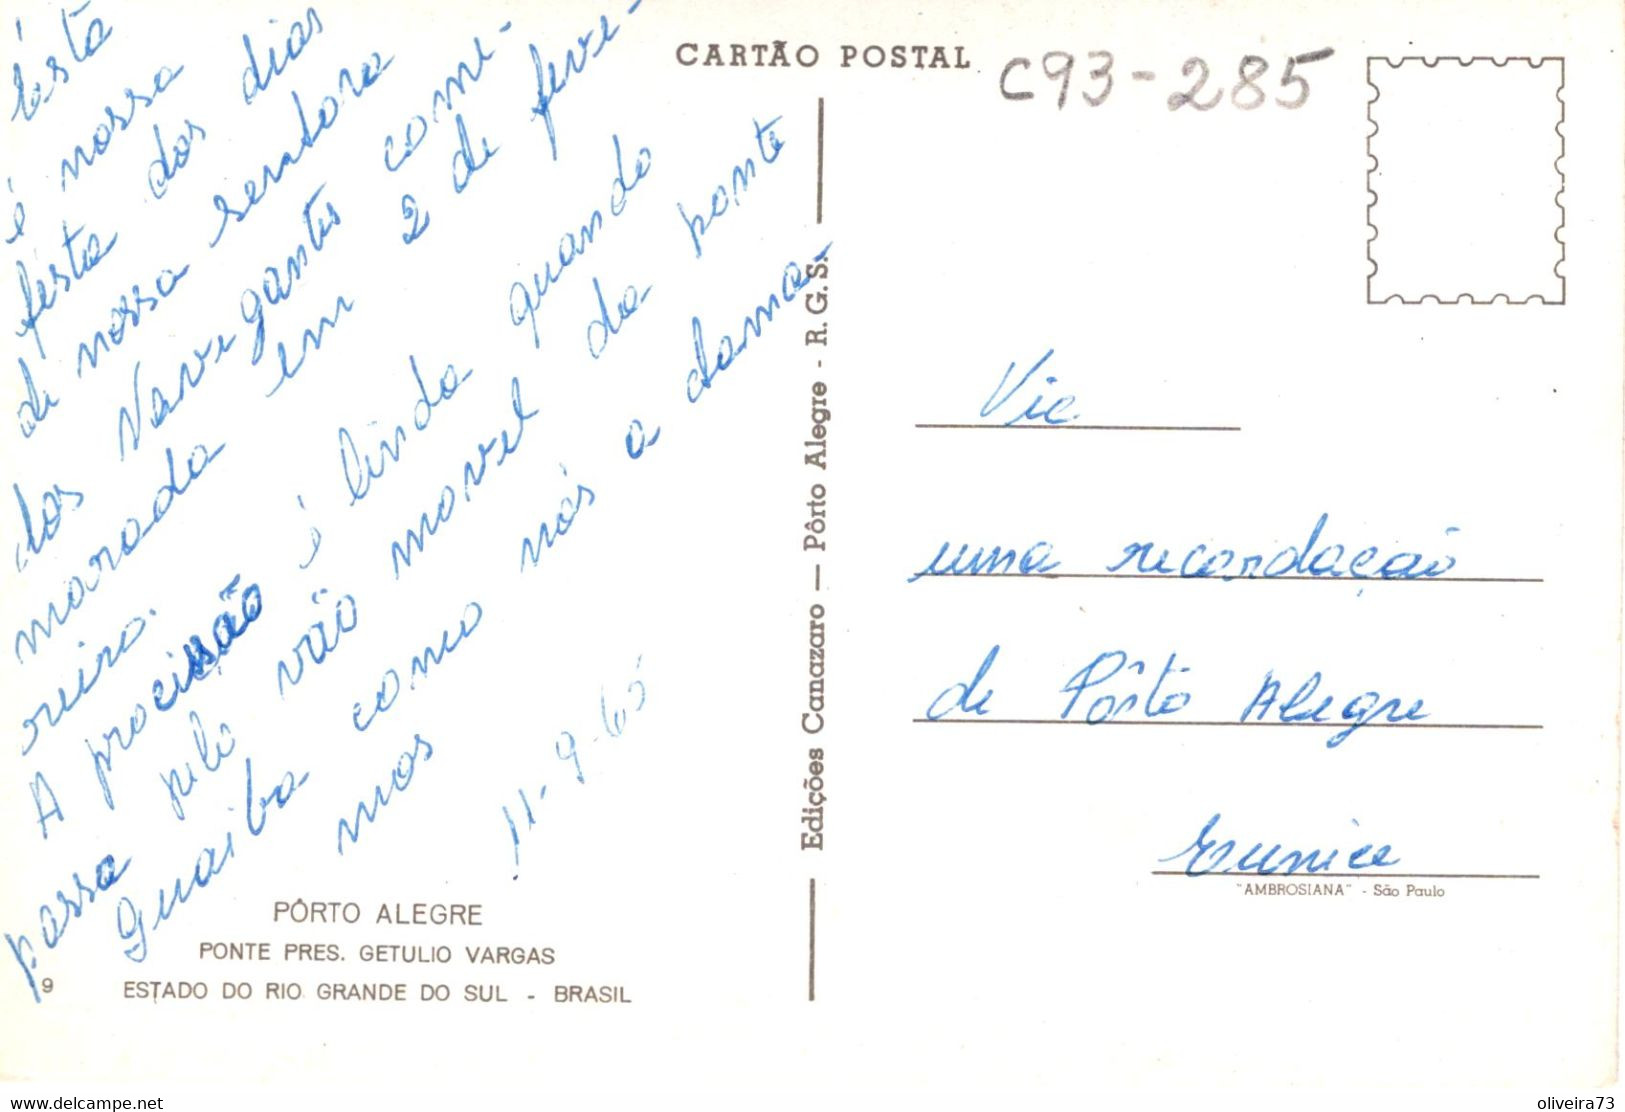 CARTÃO POSTAL
C93-285
Ésta
é nossa
festa dos dias
de nossa senhora
dos Navegantes come-
morada em 2 de feve-
reiro.
A procissão é linda quando
passa pelo vão movel da ponte
Guaiba como nós a chama-
mos
11-9-65
Edições Canazaro — Pôrto Alegre - R. G. S.
Vic
uma recordação
de Pôrto Alegre
Eunice
"AMBROSIANA" - São Paulo
PÔRTO ALEGRE
PONTE PRES. GETULIO VARGAS
9
ESTADO DO RIO GRANDE DO SUL - BRASIL
www.delcampe.net
oliveira73